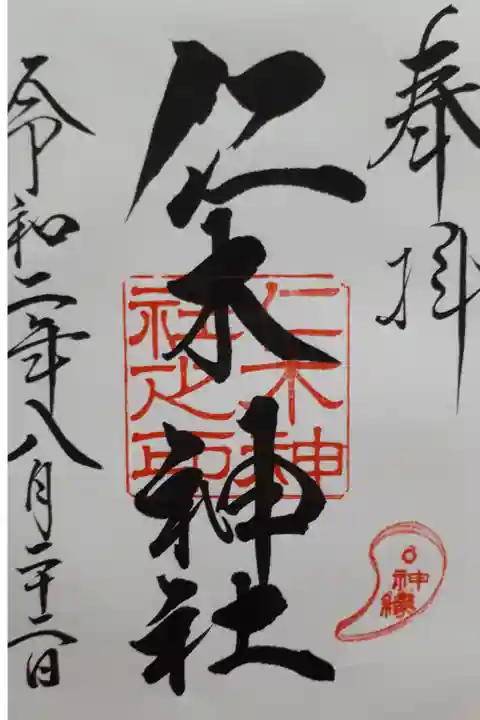 奉拝
仁木神社
仁木神
社之印
神縁
令和二年八月二十二日